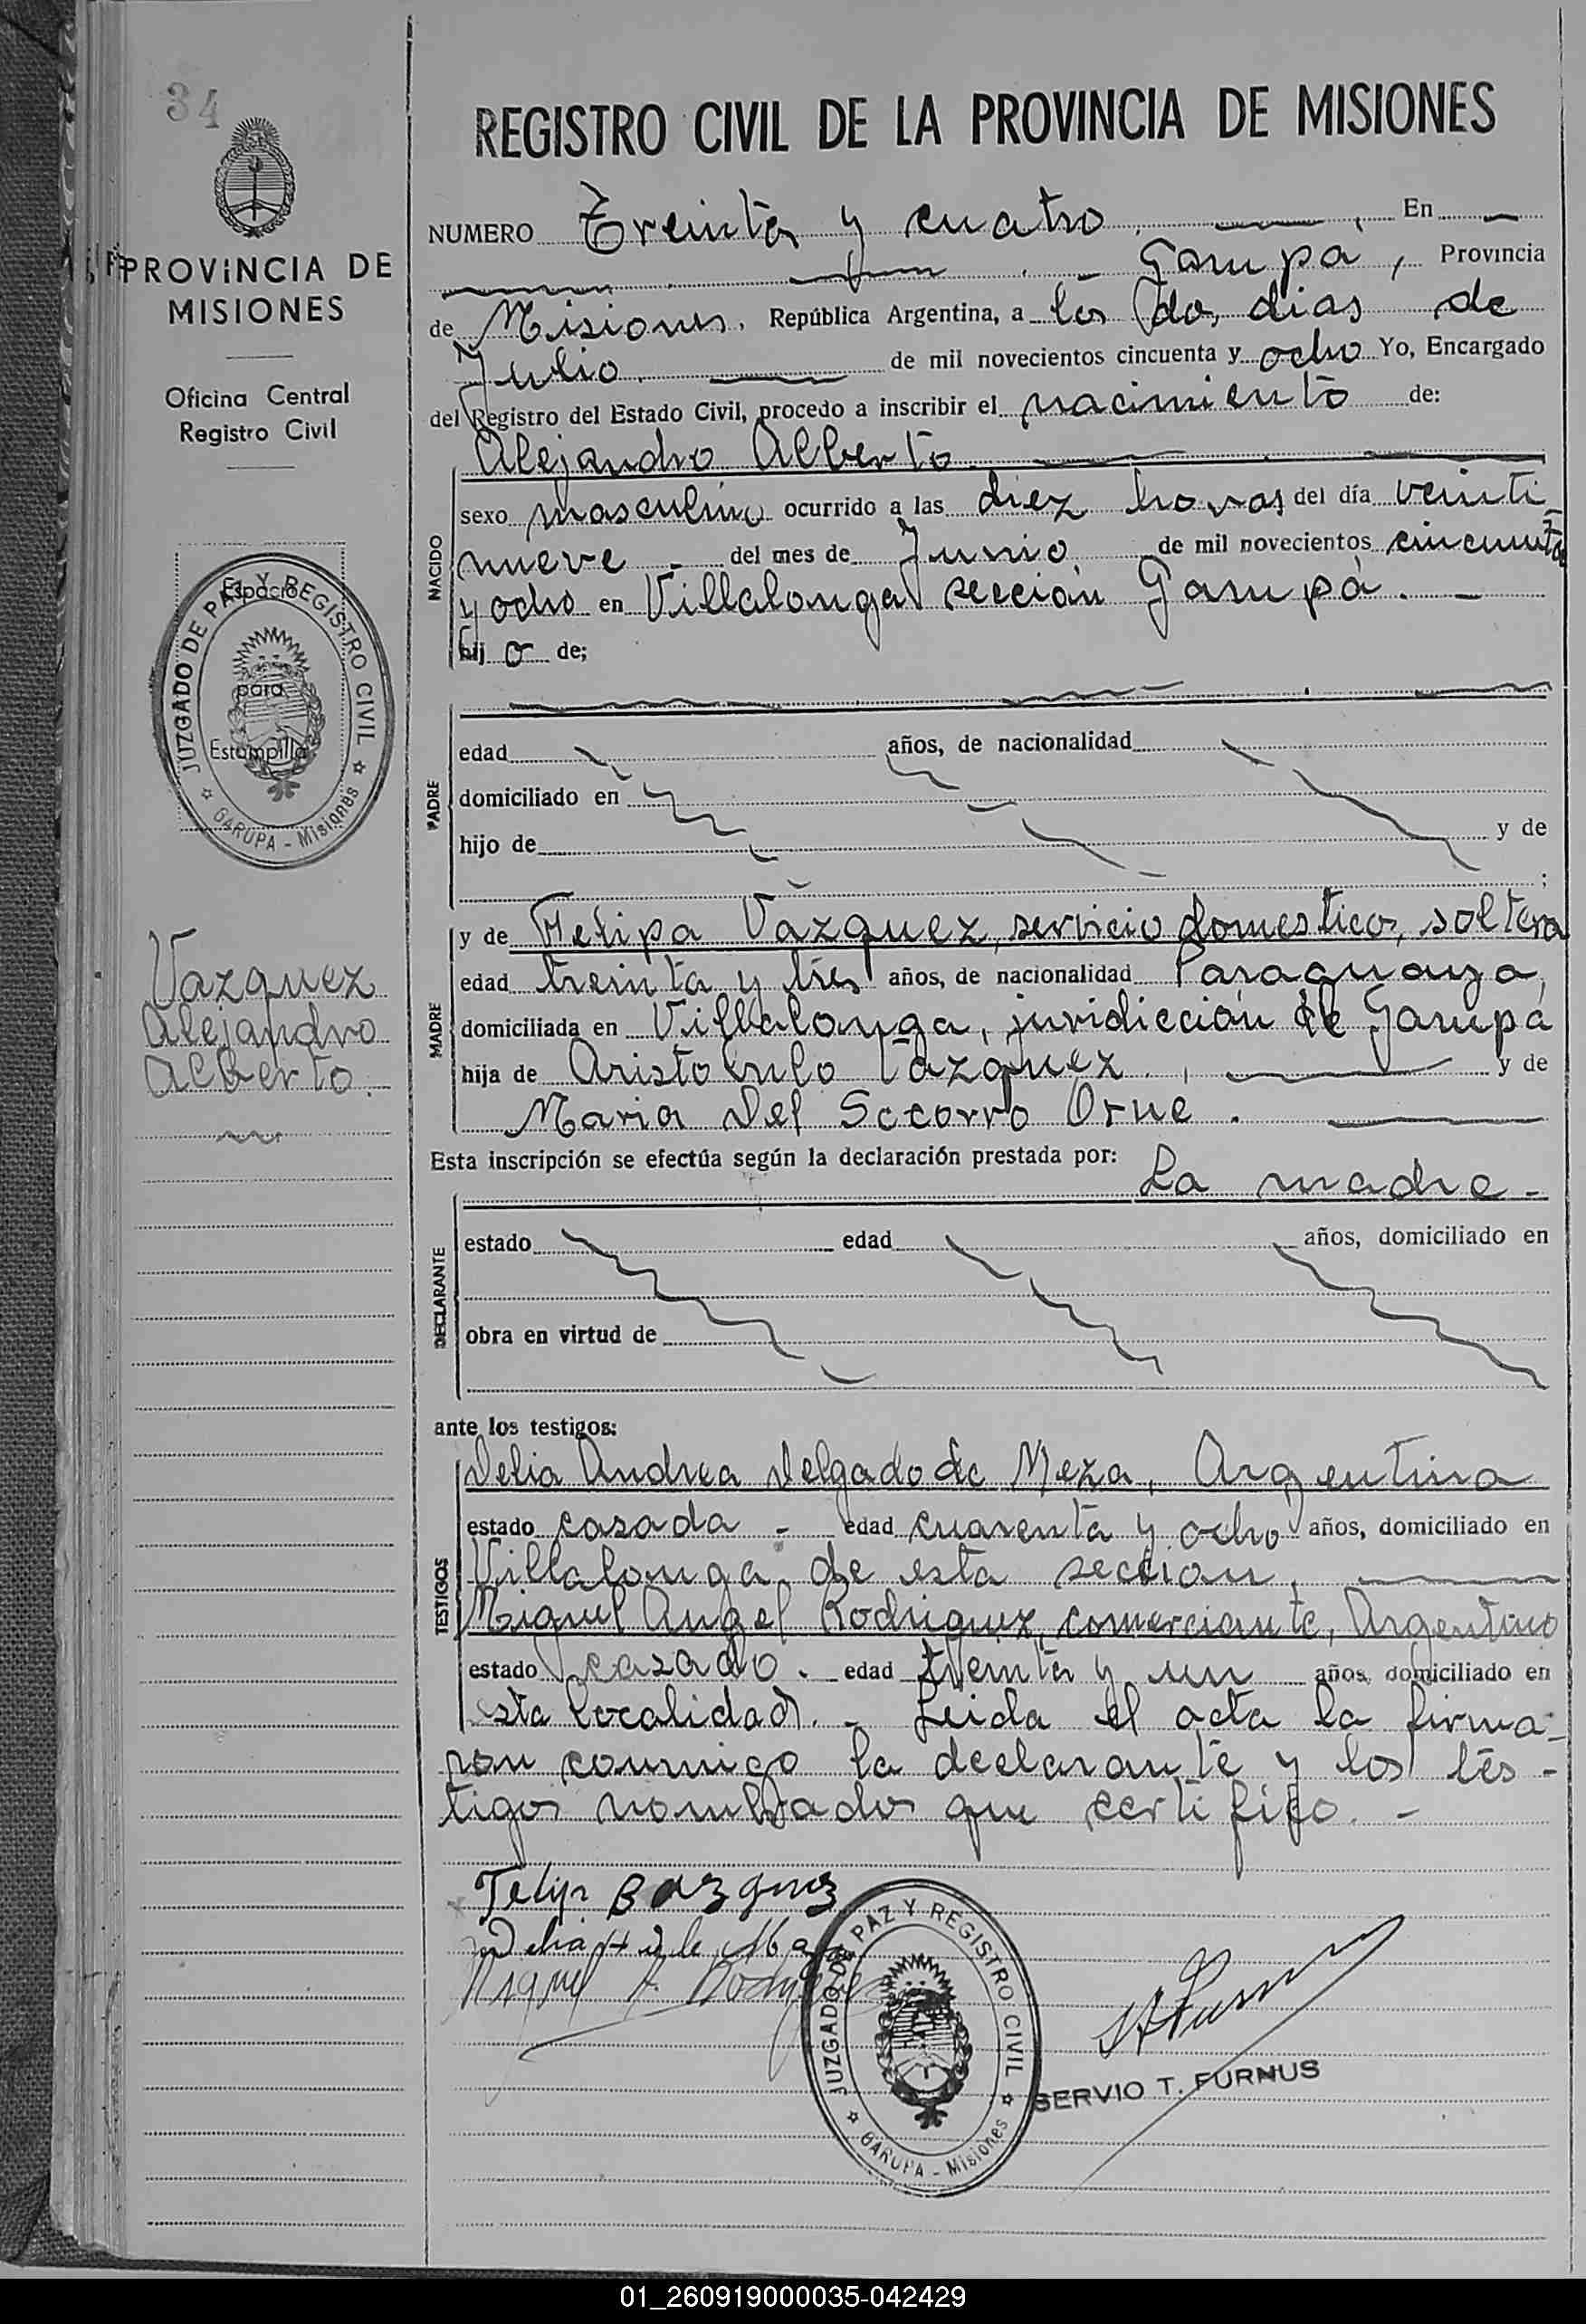 34
PROVINCIA DE
MISIONES
Oficina Central
Registro Civil
Espacio
para
Estampilla
JUZGADO DE PAZ Y REGISTRO CIVIL
GARUPA - Misiones
Vazquez
Alejandro
Alberto.
REGISTRO CIVIL DE LA PROVINCIA DE MISIONES
NUMERO Treinta y cuatro, En
Garupá, Provincia
de Misiones, República Argentina, a los dos dias de
Julio de mil novecientos cincuenta y ocho Yo, Encargado
del Registro del Estado Civil, procedo a inscribir el nacimiento de:
Alejandro Alberto
NACIDO
sexo masculino ocurrido a las diez horas del día veinti
nueve - del mes de Junio de mil novecientos cincuenta
y ocho en Villalonga sección Garupá. -
hijo de;
PADRE
edad años, de nacionalidad
domiciliado en
hijo de y de
;
MADRE
y de Felipa Vázquez, servicio domestico, soltera
edad treinta y tres años, de nacionalidad Paraguaya,
domiciliada en Villalonga, juridicción de Garupá
hija de Aristobulo Vazquez y de
Maria Del Socorro Orue.
Esta inscripción se efectúa según la declaración prestada por:
La madre -
DECLARANTE
estado edad años, domiciliado en
obra en virtud de
ante los testigos:
TESTIGOS
Delia Andrea Delgado de Meza, Argentina
estado casada - edad cuarenta y ocho años, domiciliado en
Villalonga de esta seccion,
Miguel Angel Rodriguez, comerciante, Argentino
estado casado. edad treinta y un años, domiciliado en
esta localidad. - Leida el acta la firma-
ron conmigo la declarante y los tes-
tigos nombrados que certifico. -
Felipa Bazquez
Delia A D de
Miguel A. Rodriguez
JUZGADO DE PAZ Y REGISTRO CIVIL
GARUPA - Misiones
SERVIO T. FURNUS
01_260919000035-042429